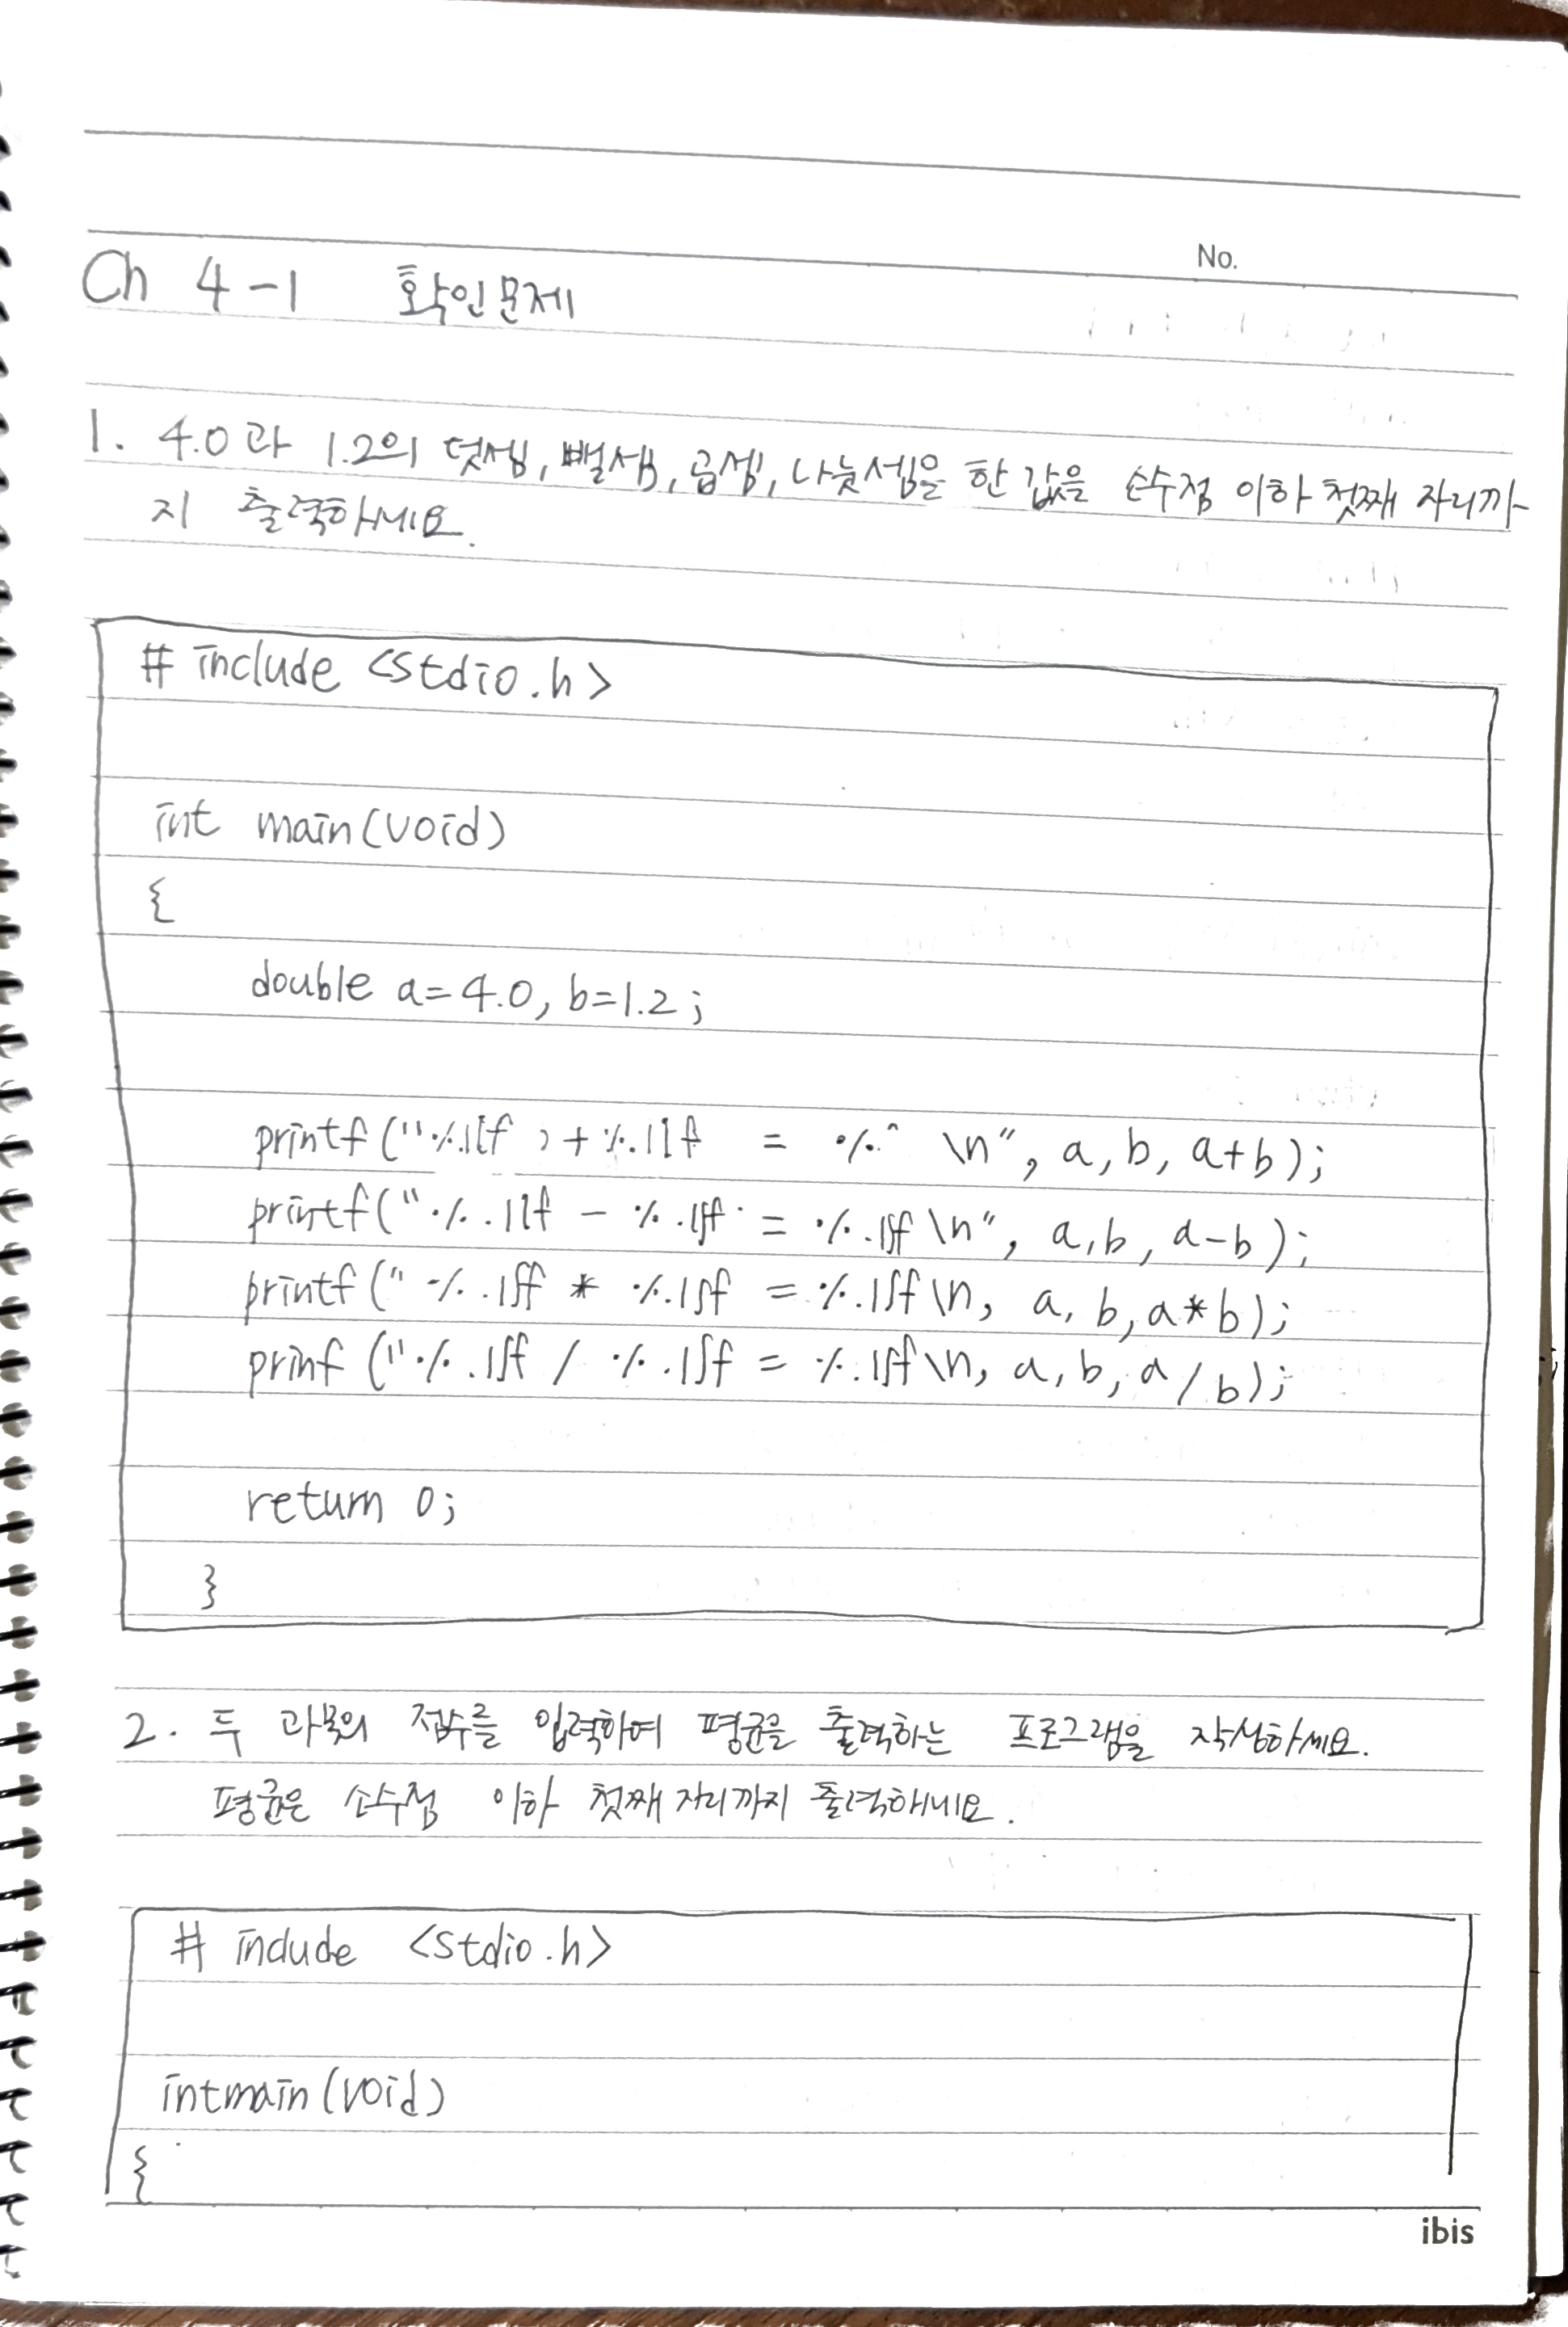 No.
Ch 4-1 확인문제
1. 4.0과 1.2의 덧셈, 뺄셈, 곱셈, 나눗셈을 한 값을 소수점 이하 첫째 자리까
지 출력하세요.
# include <stdio.h>
int main(void)
{
double a=4.0, b=1.2;
printf("%.1lf + %.1lf = % \n", a, b, a+b);
printf("%.1lf - %.1lf = %.1lf\n", a, b, a-b);
printf("%.1lf * %.1lf = %.1lf\n, a, b, a*b);
prinf ("%.1lf / %.1lf = %.1lf\n, a, b, a/b);
return 0;
}
2. 두 과목의 점수를 입력하여 평균을 출력하는 프로그램을 작성하세요.
평균은 소수점 이하 첫째 자리까지 출력하세요.
# include <stdio.h>
intmain(void)
{
ibis